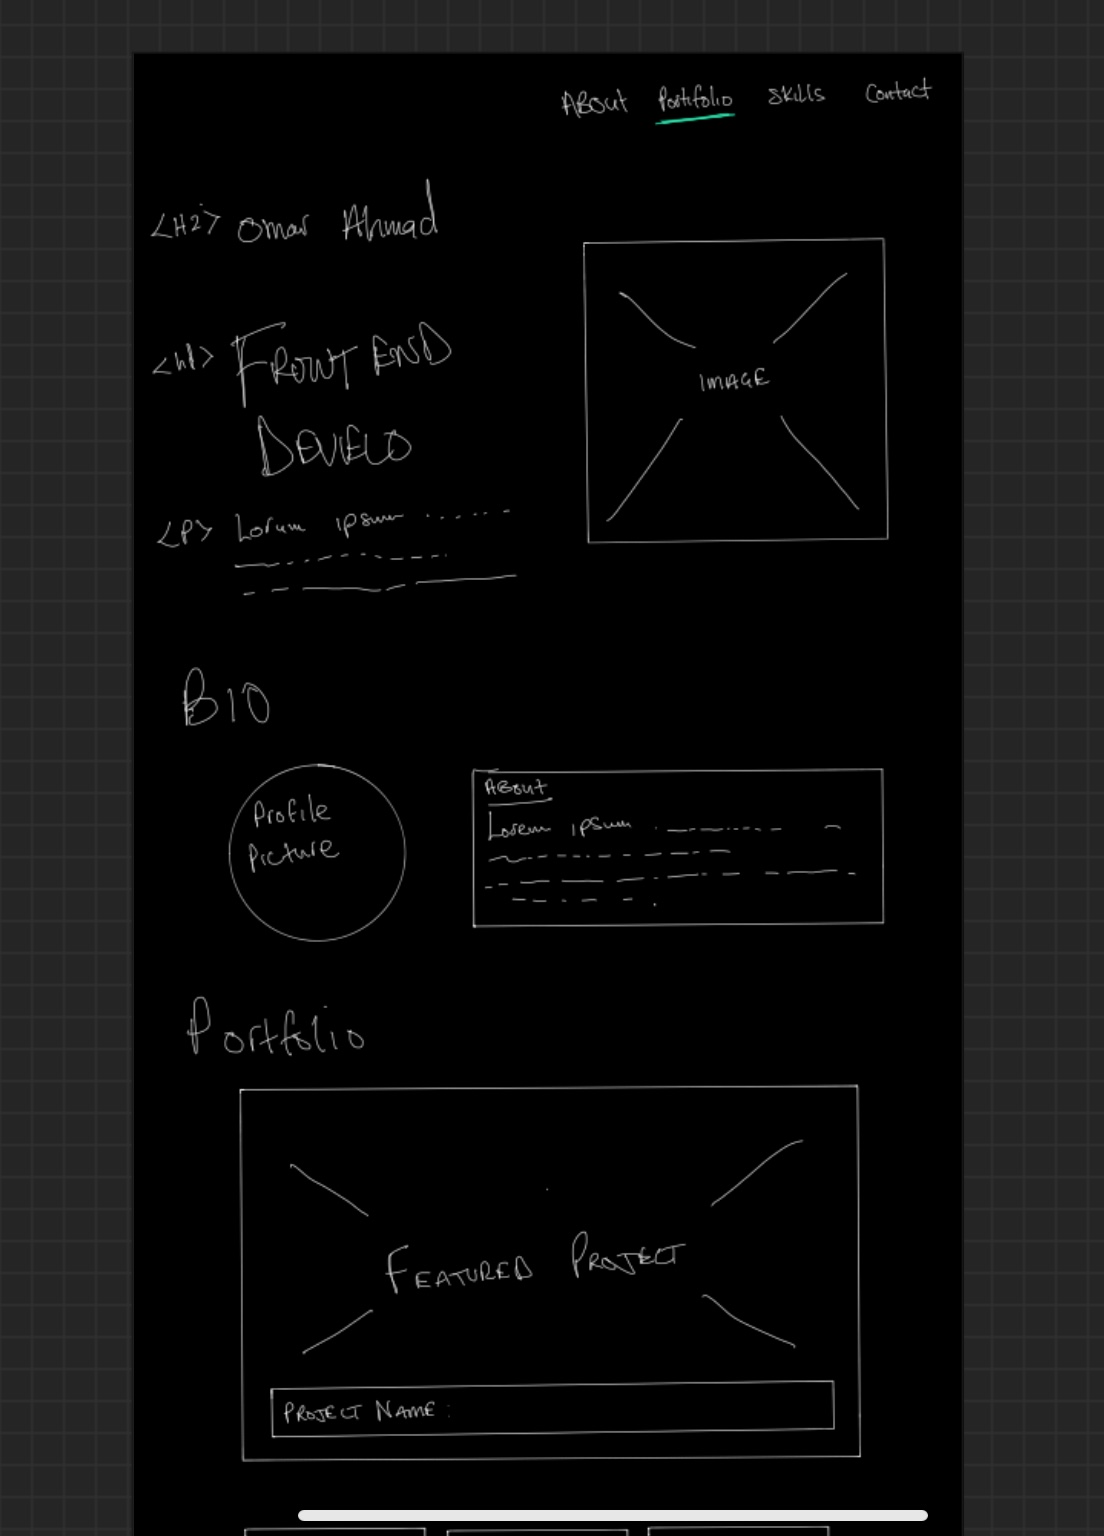 About Portfolio Skills Contact
<H2> Omar Ahmad
<h1> FRONT END
DEVELO
<P> Lorum ipsum ......
IMAGE
BIO
Profile
Picture
About
Lorem ipsum
Portfolio
FEATURED PROJECT
PROJECT NAME :